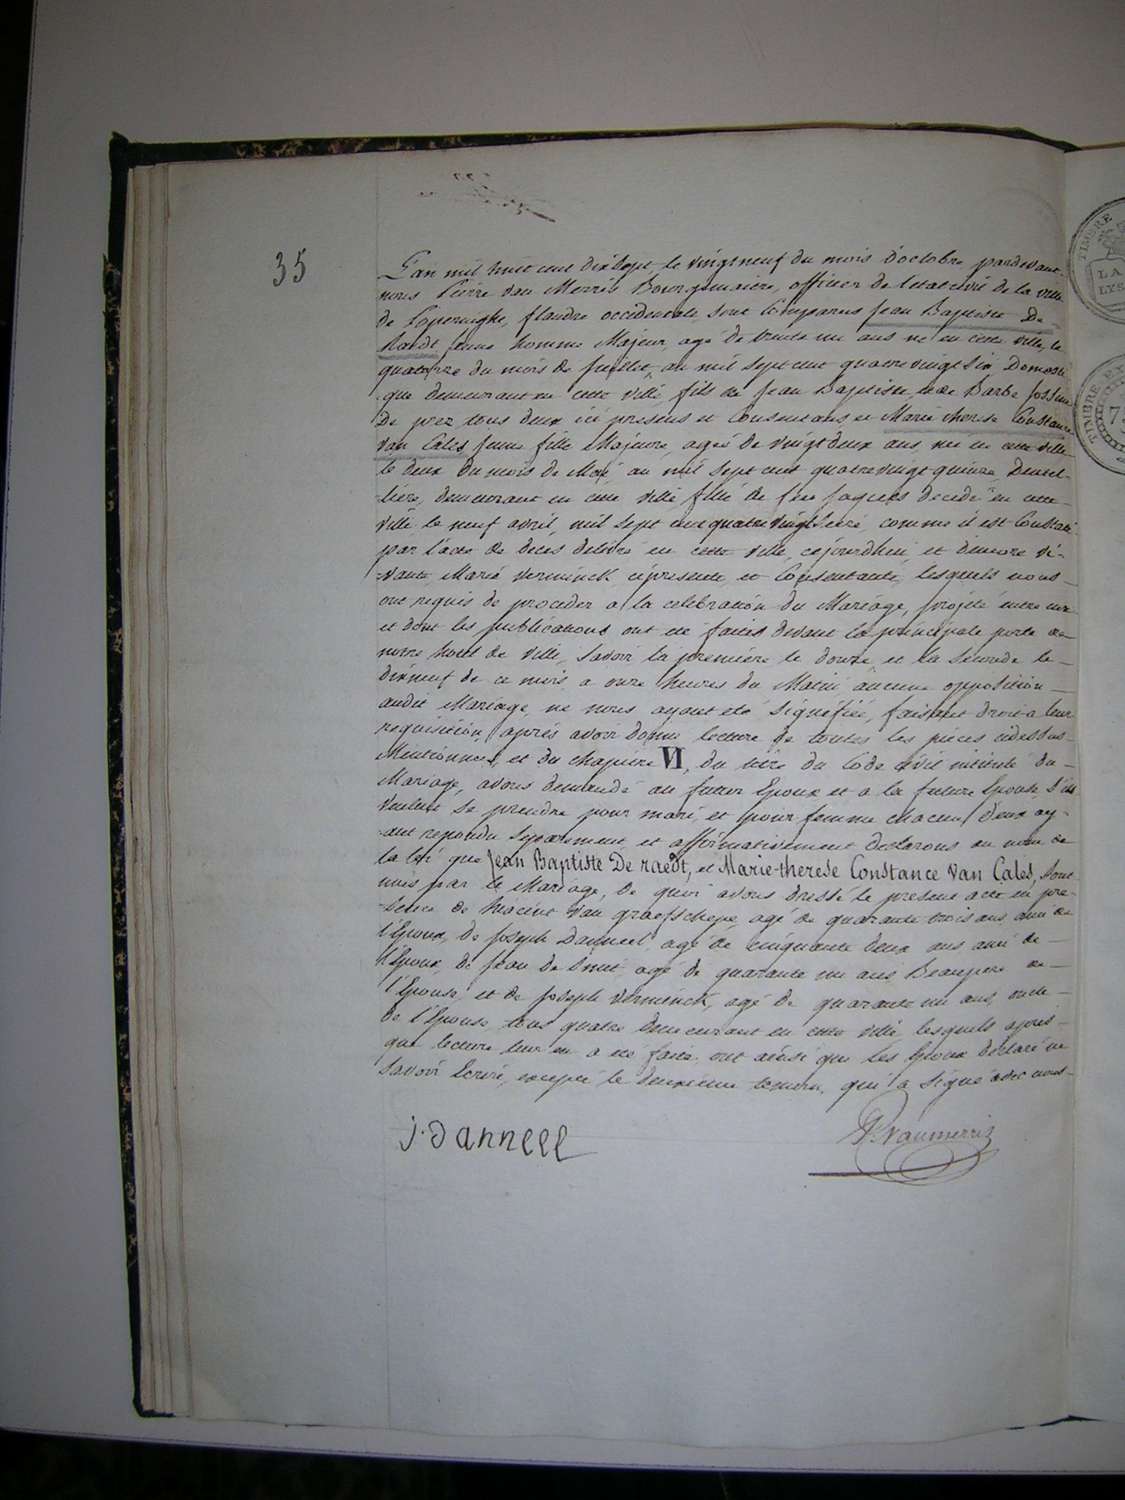 35
L'an mil huit cent dix sept, le vingt neuf du mois d'octobre pardevant
nous Pierre Van Merris Bourguemaitre, officier de l'etat civil de la ville
de Poperinghe, flandre occidentale, sont Comparus Jean Baptiste De
Raedt jeune homme Majeur, agé de trente un ans né en cette ville, le
quatorze du mois de Juillet, an mil sept cent quatrevingt six Domesti-
-que demeurant en cette ville, fils de Jean Baptiste, et de Barbe
De tous deux ici presens et Consentans, et Marie therese Constance
Van Cales jeune fille Majeure, ageé de vingt deux ans, neé en cette ville
le deux du mois de Mai, an mil sept cent quatrevingt quinze, Dentel-
-liere, demeurant en cette ville fille de feu Jaques decedé en cette
ville, le neuf avril, mil sept cent quatrevingt seize, comme il est Constaté
par l'acte de deces delivré en cette ville, cejourdhui et d'encore vi-
-vante, Marie Verminck, cipresente et Consentante, lesquels nous
ont requis de proceder a la celebration du Mariage, projeté entre eux
et dont les publications ont eté faites devant la principale porte de
notre hotel de ville, savoir la premiere le douze, et la seconde le
dixneuf de ce mois a onze heures du Matin aucune opposition
audit Mariage, ne nous ayant eté signifiée, faisant droit a leur
requisition, aprés avoir donné lecture de toutes les pieces cidessus
Mentionneés, et du chapitre VI, du titre du Code civil intitulé du
Mariage, avons demandé au futur Epoux et a la future Epouse, s'ils
veulent se prendre pour mari, et pour femme chacun d'eux ay-
-ant repondu separement et affirmativement declarons au nom de
la loi que Jean Baptiste De raedt, et Marie-therese Constance Van Cales, sont
unis par le Mariage, de quoi avons dressé le present acte en pre-
-sence de hiacint Van graefschepe, agé de quarante trois ans, ami de
l'Epoux, de Joseph Danneel, agé de cinquante deux ans ami de
l'Epoux, de Jean de Smit, agé de quarante un ans Beaupere de
l'Epouse, et de Joseph Verminck, agé de quarante un ans, oncle
de l'Epouse, tous quatre demeurant en cette ville, lesquels aprés
que lecture leur en a eté faite, ont ainsi que les Epoux declaré ne
savoir Ecrire, excepté le deuxieme temoin, qui a signé avec nous
j. danneel
P. Vanmerris
TIMBRE
LA
LYS
TIMBRE